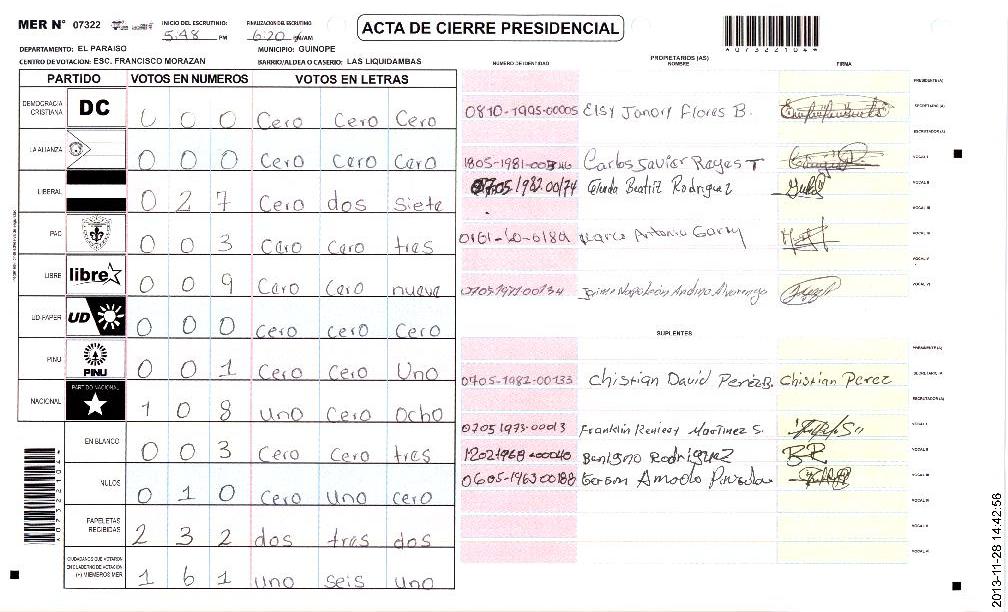 MER N° 07322 INICIO DEL ESCRUTINIO: 5:48 PM FINALIZACION DEL ESCRUTINIO: 6:20 PM/AM
ACTA DE CIERRE PRESIDENCIAL
*07322104*
DEPARTAMENTO: EL PARAISO MUNICIPIO: GUINOPE
CENTRO DE VOTACION: ESC. FRANCISCO MORAZAN BARRIO/ALDEA O CASERIO: LAS LIQUIDAMBAS
NUMERO DE IDENTIDAD PROPIETARIOS (AS) NOMBRE FIRMA
PARTIDO VOTOS EN NUMEROS VOTOS EN LETRAS
DEMOCRACIA CRISTIANA DC 0 0 0 Cero Cero Cero
LA ALIANZA 0 0 0 Cero Cero Cero
LIBERAL 0 2 7 Cero dos Siete
PAC 0 0 3 Cero Cero tres
LIBRE libre 0 0 9 Cero Cero nueve
UD FAPER UD 0 0 0 Cero Cero Cero
PINU PINU 0 0 1 Cero Cero Uno
NACIONAL PARTIDO NACIONAL 1 0 8 Uno Cero Ocho
EN BLANCO 0 0 3 Cero Cero tres
NULOS 0 1 0 Cero Uno cero
PAPELETAS RECIBIDAS 2 3 2 dos tres dos
CIUDADANOS QUE VOTARON EN CUADERNO DE VOTACION (+) MIEMBROS MER 1 6 1 Uno seis Uno
PRESIDENTE(A)
0810-1995-00005 Elsy Janory Flores B. SECRETARIO(A)
ESCRUTADOR(A)
Carlos Javier Reyes T VOCAL I
0705.1982.00174 Beatriz Rodriguez VOCAL II
VOCAL III
Marco Antonio VOCAL IV
VOCAL V
0705197100134 Jaime Napoleón Andino Alvarenga VOCAL VI
SUPLENTES
PRESIDENTE(A)
0705-1982-00133 Christian David Perez B. Christian Perez SECRETARIO(A)
ESCRUTADOR(A)
0705 1973-00013 Franklin Martinez S. VOCAL I
Benigno Rodriguez BR VOCAL II
0605-1963 00188 Gerson Amado VOCAL III
VOCAL IV
VOCAL V
VOCAL VI
*07322104*
2013-11-28 14:42:56